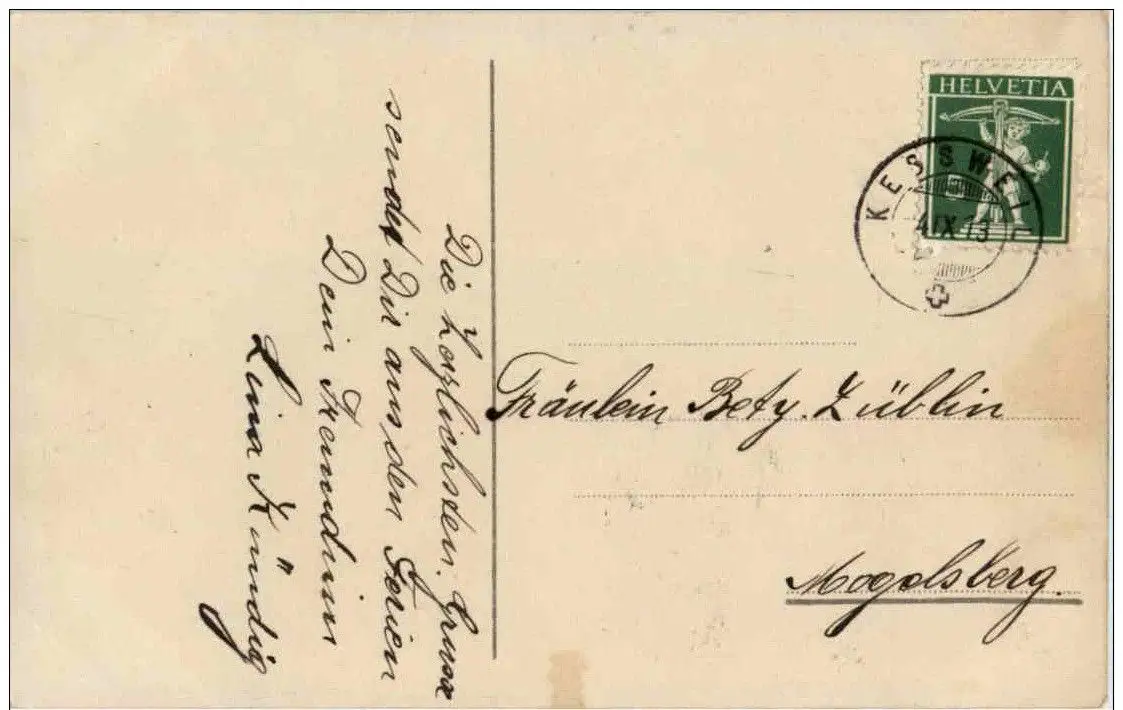 HELVETIA
KESSWEIL
IX 13
Fräulein Bety. Züblin
Mogelsberg.
Die herzlichsten. Grüsse
sendet Dir aus den Ferien
Dein Freundin
Lina Kündig